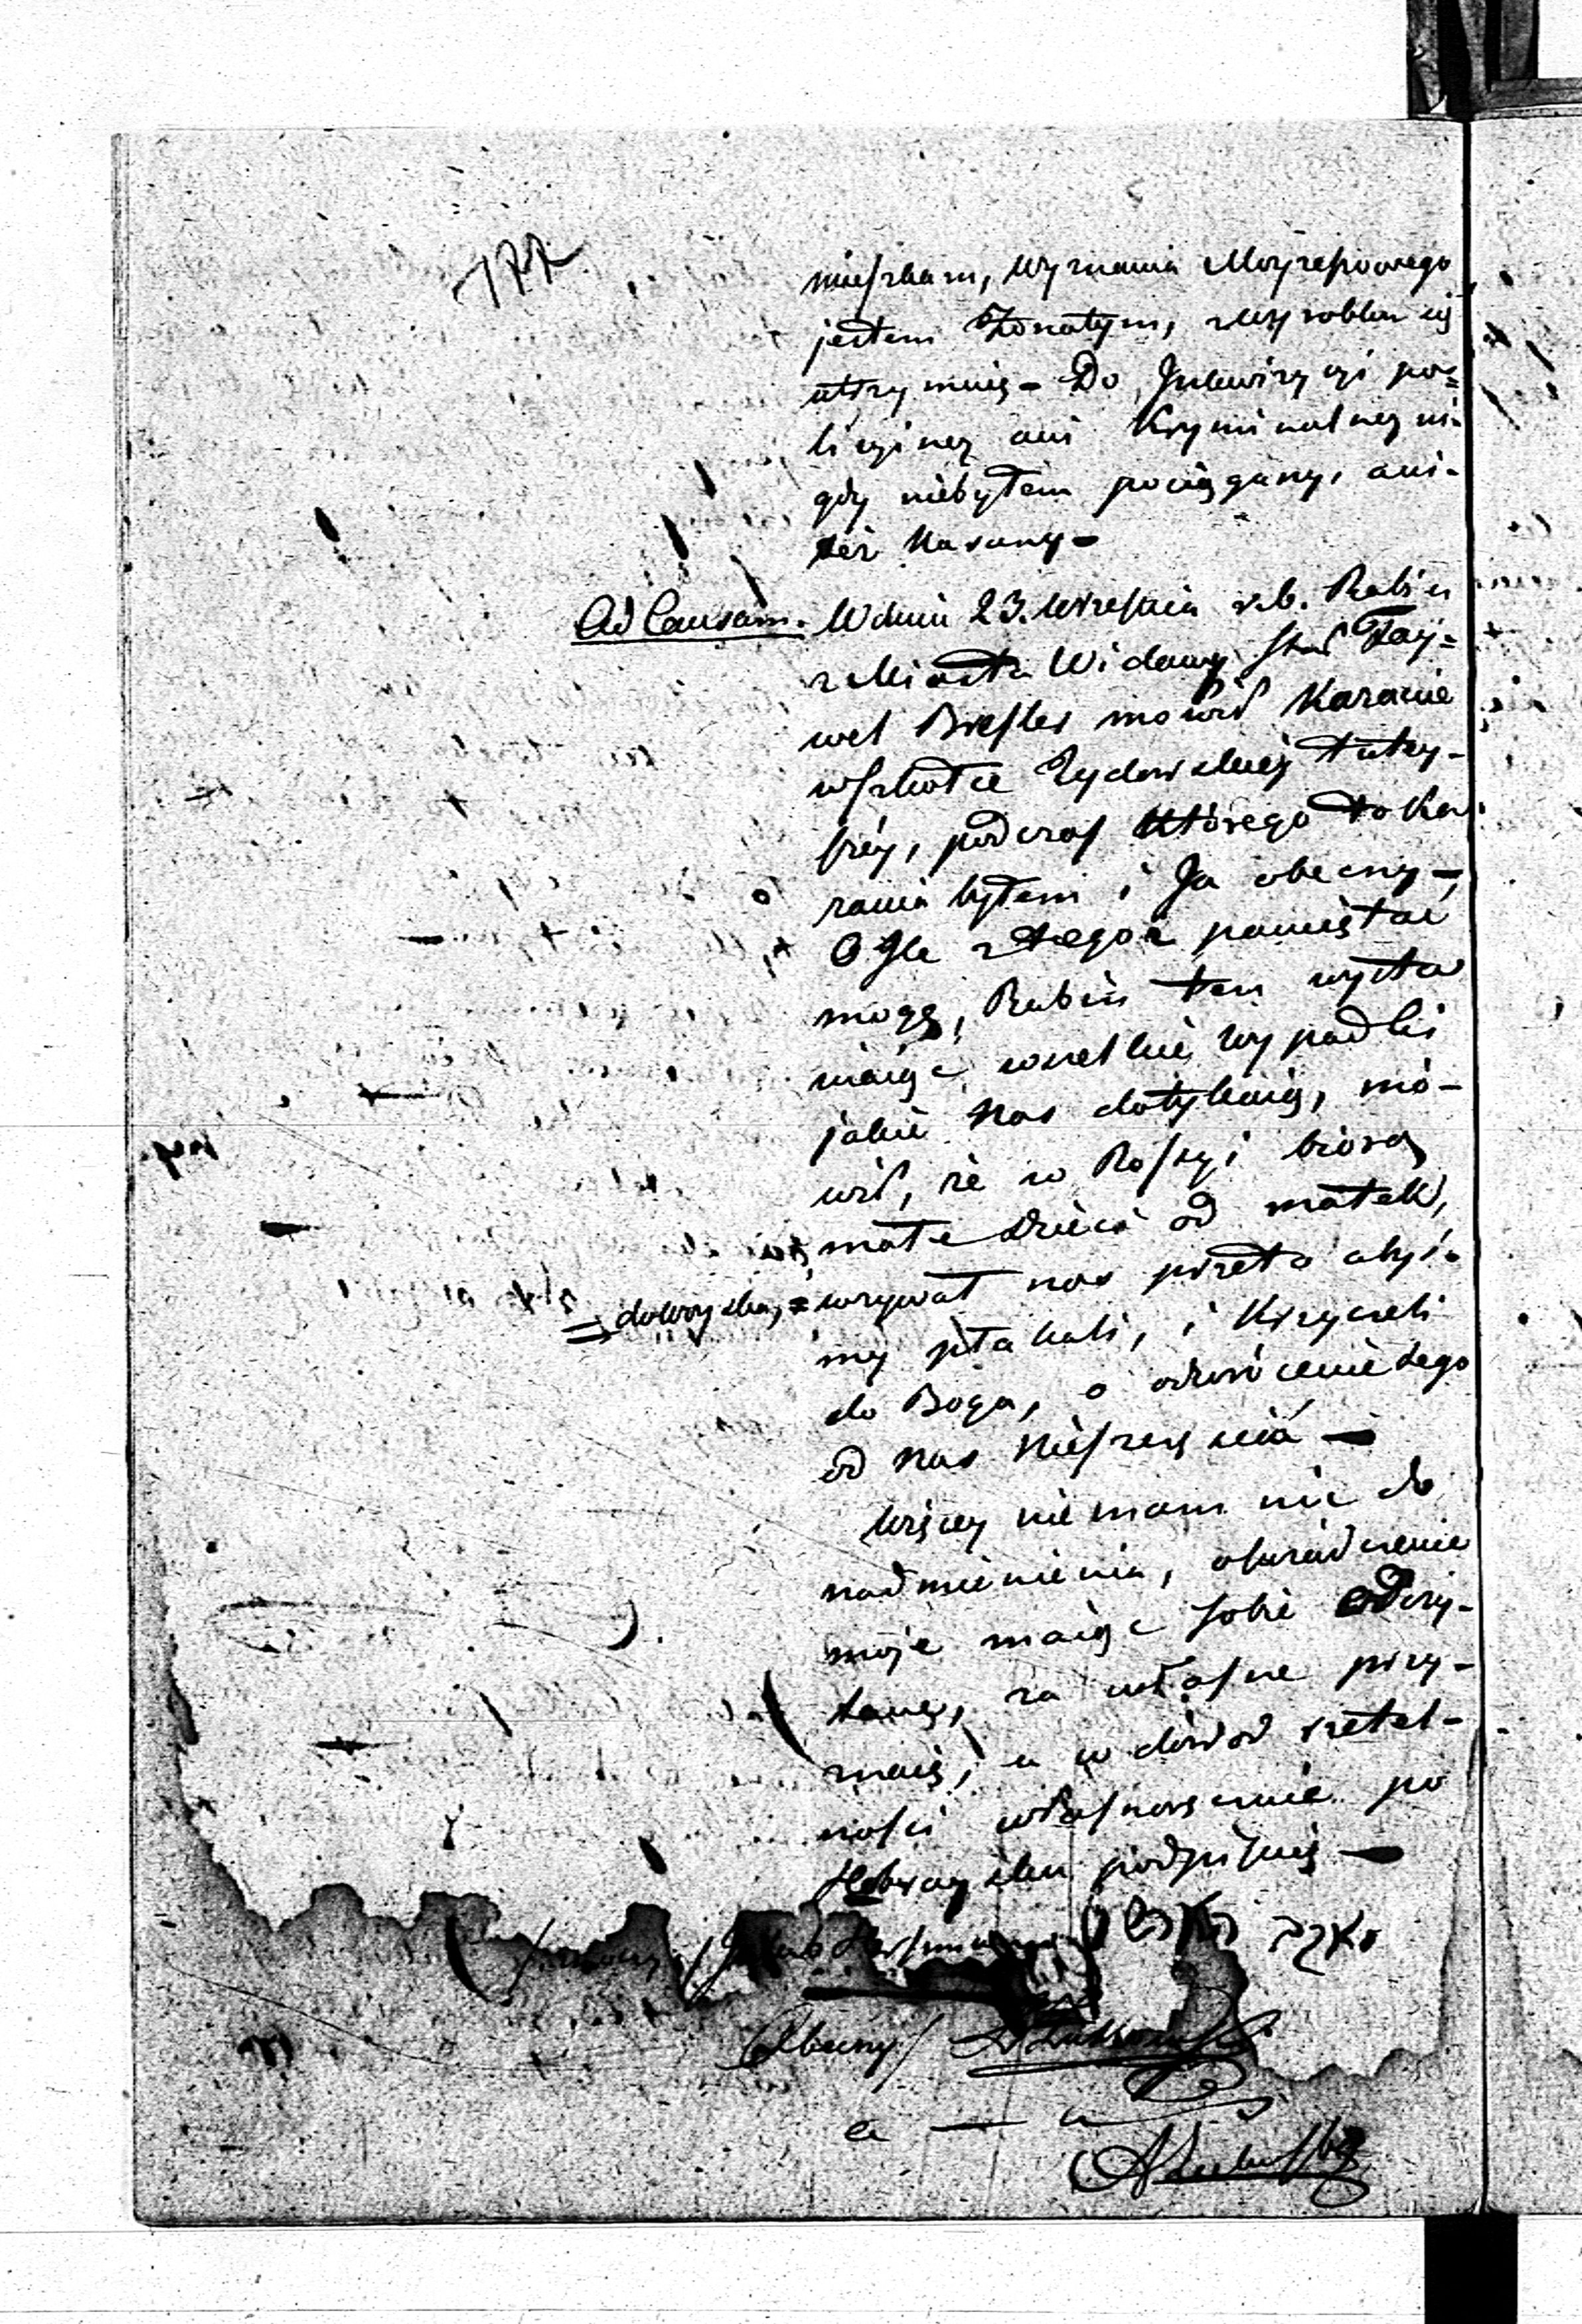 177
mieszkam, wyznania Moyzeszowego
jestem Żonatym, z wyrobku się
utrzymuię – Do Inkwizycyi po=
licyiney ani Kryminalney ni-
gdy niebyłem pociągany, ani-
też karany –
Ad Causam. W dniu 23. Września r.b. Rabin
z Miasta Widawy Fay=
wel Bresler mówił Kazanie
w szkole Żydowskiey tutey-
szey, podczas którego to Ka
zania byłem i Ja obecny –
O Ile z tegoż pamiętać
mogę, Rabin ten wysta
wiaiąc wszelkie wypadki
jakie nas dotykaią, mó-
wił, że w Rossyi biorą
małe dzieci od matek,
= dowoyska, = wzywał nas przeto abyś-
my płakali, i krzyczeli
do Boga, o odwrócenie tego
od nas nieszczęścia –
Więcey nie mam nic do
nadmienienia, oświadczenie
moje maiąc sobie odczy-
tane, za własne przy-
znaię, a w dowód rzetel-
ności własnoręcznie po
Hebraysku podpisuię –
Obecny
a — a